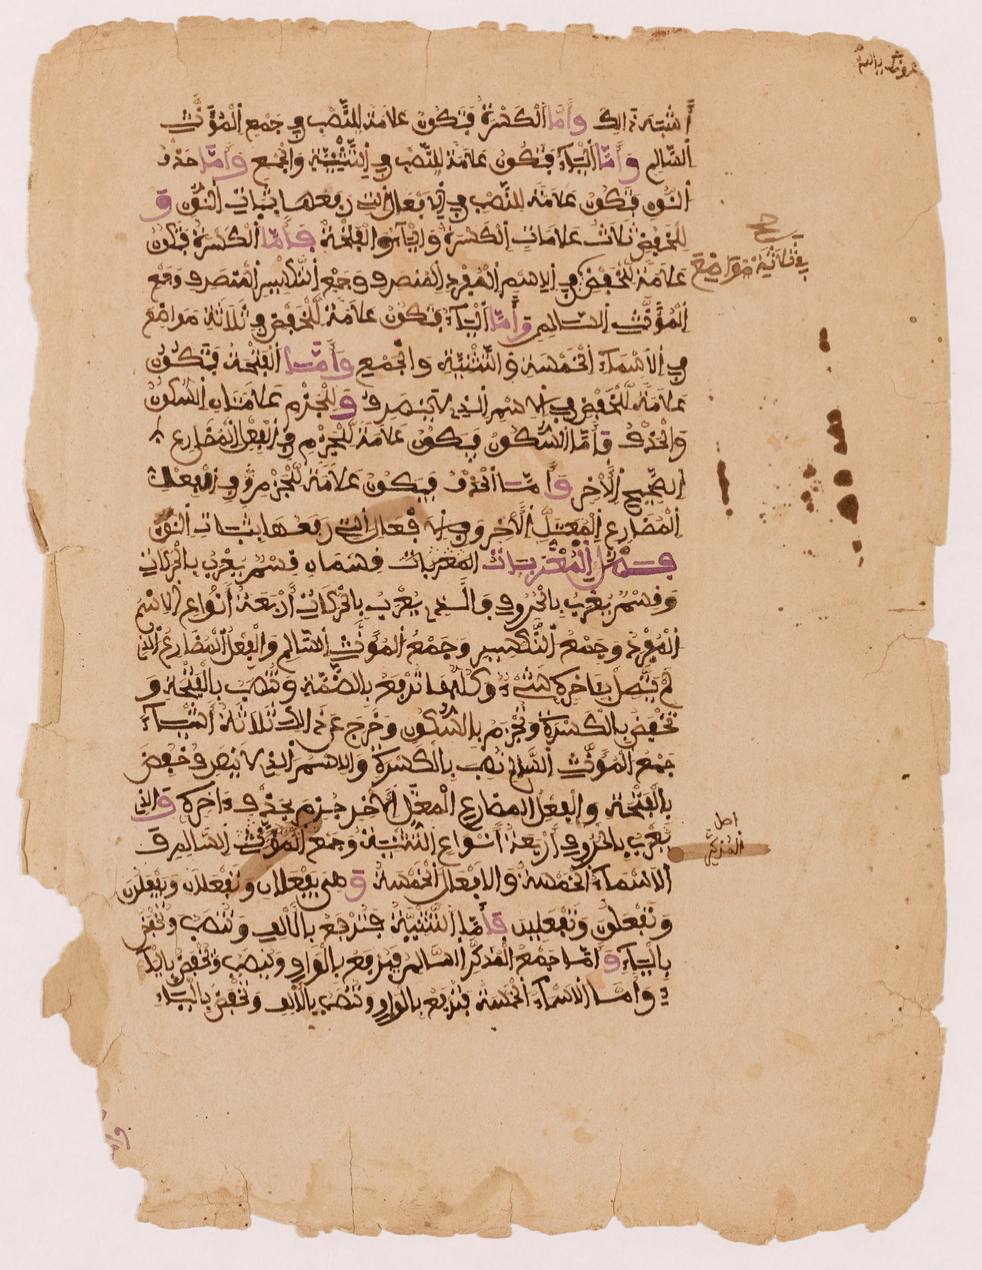 أشبه ذالك وأمّا الكسرة فتكون علامة للنّصب في جمع المؤنّث
السّالم وأمّا اليآء فتكون علامة للنّصب في التّثنية والجمع وأمّا حذف
النّون فتكون علامة للنّصب في الافعال التي رفعها بثبات النّون و
للخفض ثلاث علامات الكسرة واليآء والفتحة فأمّا الكسرة فتكون
علامة للخفض في الاسم المفرد المنصرف وجمع التّكسير المنصرف وجمع
المؤنّث السّالم وأمّا اليآء فتكون علامة للخفض في ثلاثة مواضع
في الاسمآء الخمسة والتّثنية والجمع وأمّا الفتحة فتكون
علامة للخفض في الاسم الذي لا ينصرف وللجزم علامتان السّكون
والحذف فأمّا السّكون فيكون علامة للجزم في الفعل المضارع
الصّحيح الآخر وأمّا الحذف فيكون علامة للجزم في الفعل
المضارع المعتلّ الآخر وفي الافعال التي رفعها بثبات النّون
فصل المعربات المعربات قسمان قسم يعرب بالحركات
وقسم يعرب بالحروف والذي يعرب بالحركات أربعة أنواع الاسم
المفرد وجمع التّكسير وجمع المؤنّث السّالم والفعل المضارع الذي
لم يتّصل بئاخره شيء وكلّها ترفع بالضّمّة وتنصب بالفتحة و
تخفض بالكسرة وتجزم بالسّكون وخرج عن ذالك ثلاثة أشيآء
جمع المؤنّث السّالم نصب بالكسرة والاسم الذي لا ينصرف خفض
بالفتحة والفعل المضارع المعتلّ الآخر جزم بحذف ءاخره والذي
يعرب بالحروف أربعة أنواع التّثنية وجمع المؤنّث السّالم و
الاسمآء الخمسة والافعال الخمسة وهي يفعلان وتفعلان ويفعلون
وتفعلون وتفعلين فأمّا التّثنية فترفع بالألف وتنصب وتخفض
باليآء وأمّا جمع المذكّر السّالم فيرفع بالواو وينصب ويخفض باليآء
وأمّا الاسمآء الخمسة فترفع بالواو وتنصب بالألف وتخفض باليآء
في ثلاثة مواضع
المذكّر